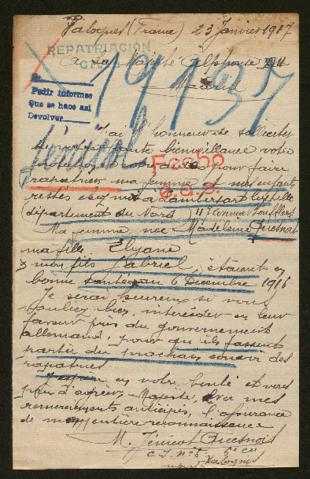 Valognes (France) 23 Janvier 1917
REPATRIACIÓN
A sa Majesté Alphonse XIII
Madrid
19137
Pedir informes
Que se hace así
Devolver
J'ai l'honneur de solliciter
de votre haute bienveillance votre
pour faire
rapatrier ma femme et mes enfants
restés chez moi à Lambersart lez Lille
département du Nord
Ma femme née Madeleine Quesnoy
ma fille Elyane
& mon fils Gabriel, étaient en
bonne santé au 6 Décembre 1916
Je serai heureux si vous
vouliez bien, intercéder en leur
faveur près du gouvernement
allemand, pour qu'ils fassent
partie du prochain convoi des
rapatriés
J'espère en votre bonté et vous
prie d'agréer, Majesté, avec mes
remerciements anticipés, l'assurance
de mon entière reconnaissance
M.
Valognes